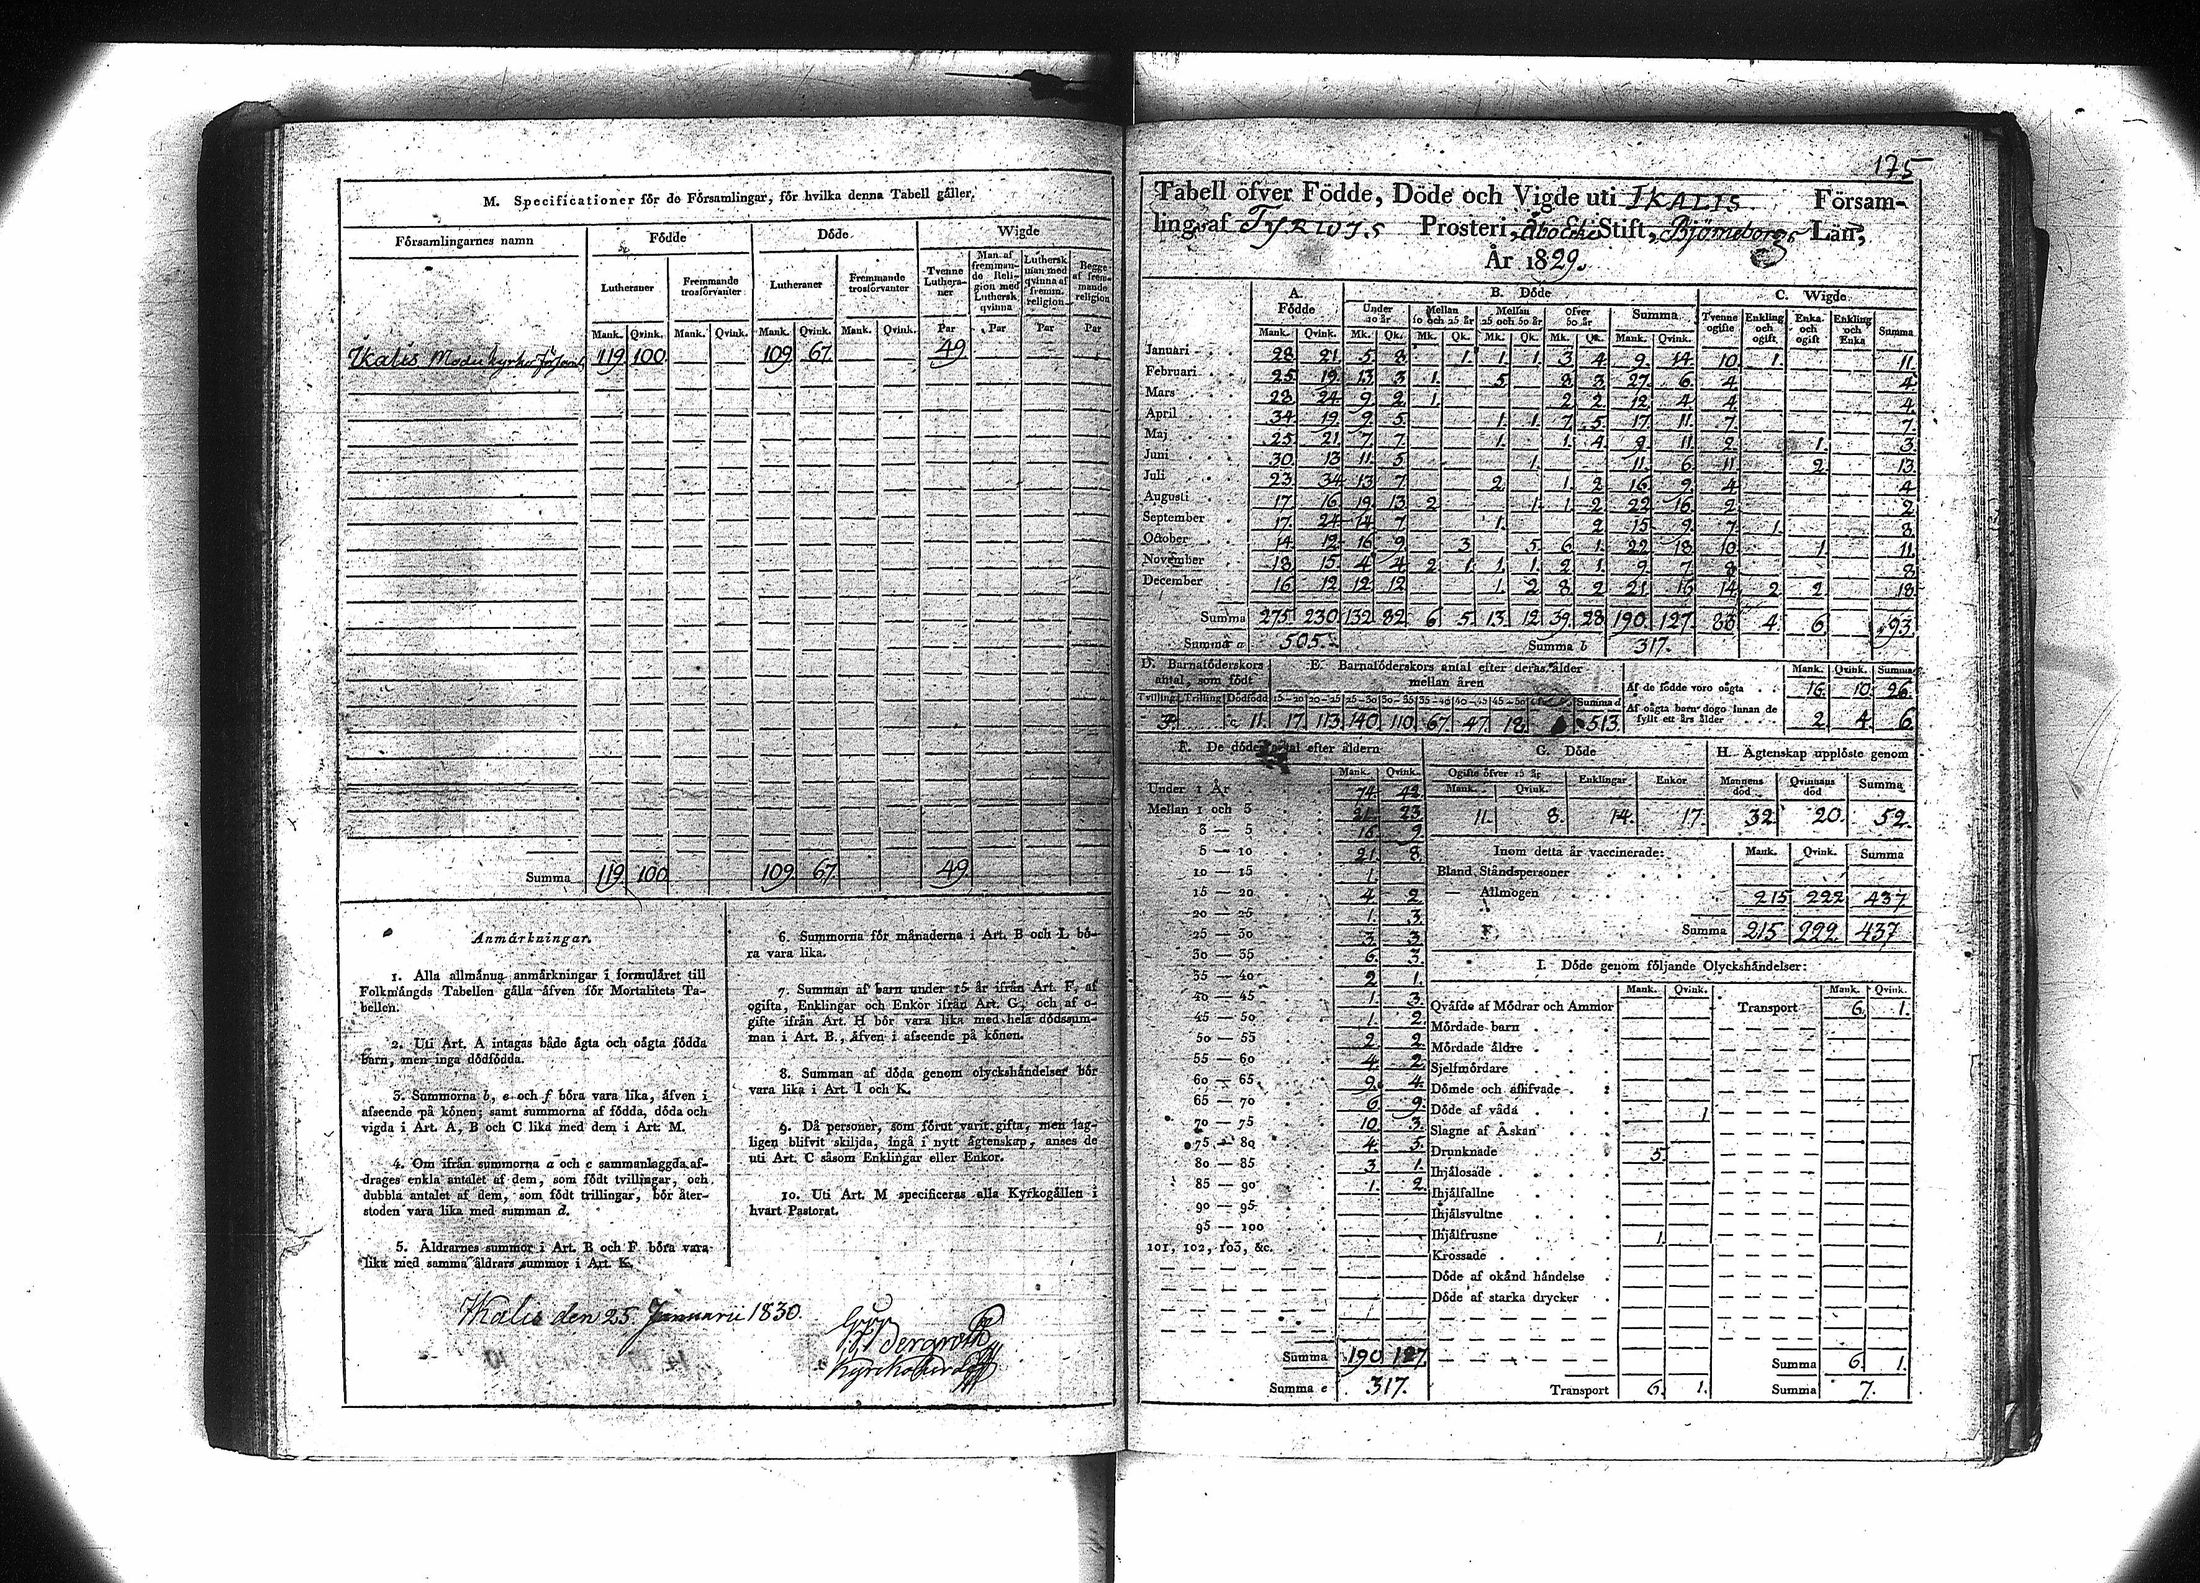 M. Specificationer för de Församlingar, för hvilka denna Tabell gäller.
Församlingarnes namn | Födde | Döde | Wigde
Lutheraner | Fremmande trosförvanter | Lutheraner | Fremmande trosförvanter | Tvenne Lutheraner | Man af fremmande Religion med Luthersk qvinna | Luthersk man med qvinna af fremm. religion | Begge af fremmande religion
Mank. | Qvink. | Mank. | Qvink. | Mank. | Qvink. | Mank. | Qvink. | Par | Par | Par | Par
Ikalis Moderkyrko 119 100 109 67 49
Summa 119 100 109 67 49
Anmärkningar.
1. Alla allmänna anmärkningar i formuläret till
Folkmängds Tabellen gälla äfven för Mortalitets Ta-
bellen.
2. Uti Art. A intagas både ägta och oägta födda
barn, men inga dödfödda.
3. Summorna b, e och f böra vara lika, äfven i
afseende på könen; samt summorna af födda, döda och
vigda i Art. A, B och C lika med dem i Art. M.
4. Om ifrån summorna a och c sammanlaggda af-
drages enkla antalet af dem, som födt tvillingar, och
dubbla antalet af dem, som födt trillingar, bör åter-
stoden vara lika med summan d.
5. Åldrarnes summor i Art. B och F böra vara
lika med samma åldrars summor i Art. K.
6. Summorna för månaderna i Art. B och L bö-
ra vara lika.
7. Summan af barn under 15 år ifrån Art. F, af
ogifta, Enklingar och Enkor ifrån Art. G, och af o-
gifte ifrån Art. H bör vara lika med hela dödssum-
man i Art. B., äfven i afseende på könen.
8. Summan af döda genom olyckshändelser bör
vara lika i Art. I och K.
9. Då personer, som förut varit gifta, men lag-
ligen blifvit skiljda, ingå i nytt ägtenskap, anses de
uti Art. C såsom Enklingar eller Enkor.
10. Uti Art. M specificeras alla Kyrkogällen i
hvart Pastorat.
Ikalis den 25 Januarii 1830.
Bergroth
Kyrkoherde
175
Tabell öfver Födde, Döde och Vigde uti IKALIS Församling
ling af TYRWIS Prosteri, Åbo Erke Stift, Björneborgs Län,
År 1829.
A. Födde | B. Döde | C. Wigde
Under 10 år | Mellan 10 och 25 år | Mellan 25 och 50 år | Öfver 50 år | Summa | Tvenne ogifte | Enkling och ogift | Enka och ogift | Enkling och Enka | Summa
Mank. | Qvink. | Mk. | Qk. | Mk. | Qk. | Mk. | Qk. | Mk. | Qk. | Mank. | Qvink.
Januari 28 21 5 8 1 1 1 3 4 9 14 10 1 11
Februari 25 19 13 3 1 5 8 3 27 6 4 4
Mars 28 24 9 2 1 2 2 12 4 4 4
April 34 19 9 5 1 1 7 5 17 11 7 7
Maj 25 21 7 7 1 1 4 9 11 2 1 3
Juni 30 13 11 5 1 11 6 11 2 13
Juli 23 34 13 7 2 1 2 16 9 4 4
Augusti 17 16 19 13 2 1 1 2 22 16 2 2
September 17 24 14 7 1 2 15 9 7 1 8
October 14 12 16 9 3 5 6 1 22 18 10 1 11
November 18 15 4 4 2 1 1 1 2 1 9 7 8 8
December 16 12 12 12 1 2 8 2 21 16 14 2 2 18
Summa 275 230 132 82 6 5 13 12 39 28 190 127 83 4 6 93
Summa a 505. Summa b 317.
D. Barnaföderskors antal, som födt | E. Barnaföderskors antal efter deras ålder mellan åren
Tvilling | Trilling | Dödfödd | 15—20 | 20—25 | 25—30 | 30—35 | 35—40 | 40—45 | 45—50 | Summa d
3 c 11 17 113 140 110 67 47 19 513
Mank. | Qvink. | Summa
Af de födde voro oägta 16 10 26
Af oägta barn dogo innan de fyllt ett års ålder 2 4 6
F. De dödes antal efter åldern
Mank. Qvink.
Under 1 År 74 42
Mellan 1 och 3 21 23
3 — 5 16 9
5 — 10 21 8
10 — 15 1
15 — 20 4 2
20 — 25 1 3
25 — 30 3 3
30 — 35 6 3
35 — 40 2 1
40 — 45 1 3
45 — 50 1 2
50 — 55 2 2
55 — 60 4 2
60 — 65 9 4
65 — 70 6 9
70 — 75 10 3
75 — 80 4 5
80 — 85 3 1
85 — 90 1 2
90 — 95
95 — 100
101, 102, 103, &c.
Summa 190 127
Summa e 317.
G. Döde
Ogifte öfver 15 år | Enklingar | Enkor
Mank. | Qvink.
11 8 14 17
H. Ägtenskap upplöste genom
Mannens död | Qvinnans död | Summa
32 20 52
Inom detta år vaccinerade: Mank. Qvink. Summa
Bland Ståndspersoner
— Allmogen 215 222 437
Summa 215 222 437
I. Döde genom följande Olyckshändelser:
Mank. Qvink. Mank. Qvink.
Qväfde af Mödrar och Ammor Transport 6 1
Mördade barn
Mördade äldre
Sjelfmördare
Dömde och aflifvade
Döde af våda 1
Slagne af Åskan
Drunknade 5
Ihjälosade
Ihjälfallne
Ihjälsvultne
Ihjälfrusne 1
Krossade
Döde af okänd händelse
Döde af starka drycker
Summa 6 1
Transport 6 1 Summa 7